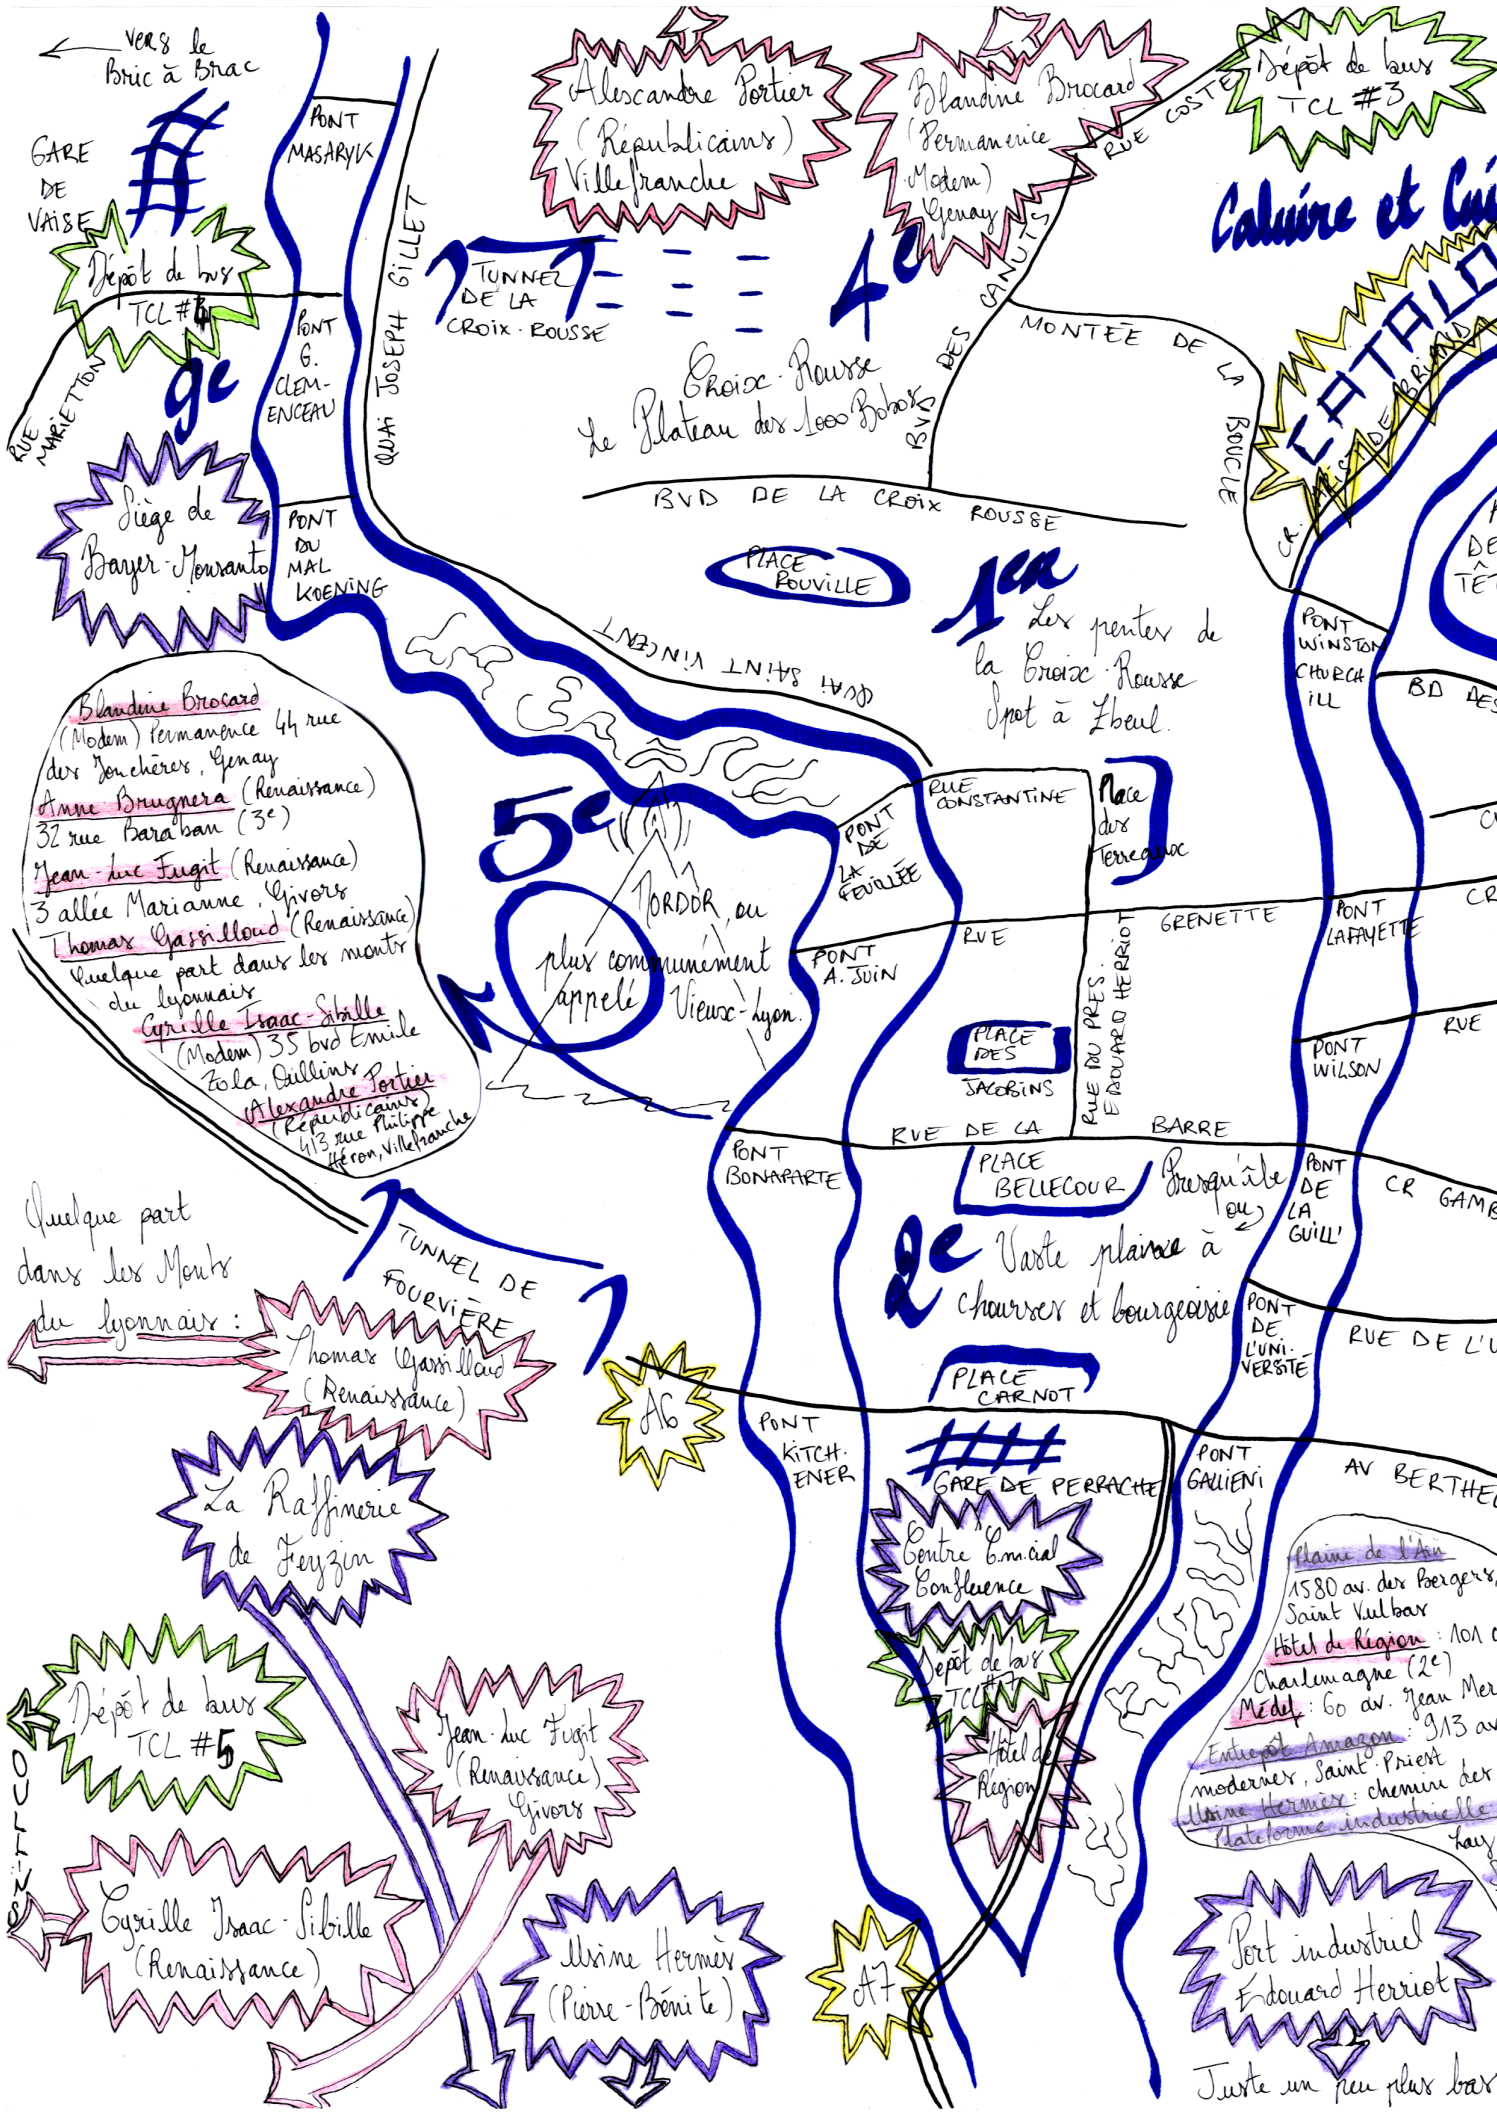 vers le
Bric à Brac
GARE
DE
VAISE
Dépôt de bus
TCL #4
9e
RUE
MARIETTON
PONT
MASARYK
PONT
G.
CLEM-
ENCEAU
QUAI JOSEPH GILLET
TUNNEL
DE LA
CROIX-ROUSSE
Alexandre Portier
(Républicains)
Villefranche
Blandine Brocard
(Permanence
Modem)
Genay
RUE COSTE
Dépôt de bus
TCL #3
Caluire et Cui
4e
BVD DES CANUTS
MONTÉE DE LA BOUCLE
Croix-Rousse
Le Plateau des 1000 Bobos
CATALO
CR. ARISTIDE BRIAND
BVD DE LA CROIX ROUSSE
Siège de
Bayer-Monsanto
PONT
DU
MAL
KOENING
PLACE
ROUVILLE
1er
Les pentes de
la Croix-Rousse
Spot à Zbeul.
DE
TÊT
PONT
WINSTON
CHURCH
ILL
BD DES
QUAI SAINT VINCENT
Blandine Brocard
(Modem) Permanence 44 rue
des Jonchères, Genay
Anne Brugnera (Renaissance)
32 rue Baraban (3e)
Jean-Luc Fugit (Renaissance)
3 allée Marianne, Givors
Thomas Gassilloud (Renaissance)
Quelque part dans les monts
du lyonnais
Cyrille Isaac-Sibille
(Modem) 35 bvd Emile
Zola, Oullins
Alexandre Portier
(Républicains)
413 rue Philippe
Héron, Villefranche
5e
MORDOR, ou
plus communément
appelé Vieux-Lyon.
PONT
DE
LA
FEUILLÉE
RUE
CONSTANTINE
Place
des
Terreaux
PONT
A. JUIN
RUE GRENETTE
PONT
LAFAYETTE
CR
RUE DU PRES.
EDOUARD HERRIOT
PLACE
DES
JACOBINS
PONT
WILSON
RUE
PONT
BONAPARTE
RUE DE LA BARRE
PLACE
BELLECOUR
Presqu'île
ou
2e
Vaste plaine à
chourses et bourgeoisie
PONT
DE
LA
GUILL'
CR GAMB
Quelque part
dans les Monts
du lyonnais :
TUNNEL DE
FOURVIÈRE
Thomas Gassilloud
(Renaissance)
A6
PONT
DE
L'UNI-
VERSITÉ
RUE DE L'U
PLACE
CARNOT
PONT
KITCH-
ENER
GARE DE PERRACHE
PONT
GALLIENI
AV BERTHE
La Raffinerie
de Feyzin
Centre Cm.cial
Confluence
Dépôt de bus
TCL #7
Hôtel de
Région
Plaine de l'Ain
1580 av. des Bergers,
Saint Vulbas
Hôtel de Région : 101 c
Charlemagne (2e)
Médef : 60 av. Jean Mer
Entrepôt Amazon : 913 av
modernes, Saint-Priest
Usine Hermès : chemin des
Plateforme industrielle
Dépôt de bus
TCL #5
Jean-Luc Fugit
(Renaissance)
Givors
Cyrille Isaac-Sibille
(Renaissance)
Usine Hermès
(Pierre-Bénite)
A7
Port industriel
Edouard Herriot
Juste un peu plus bas